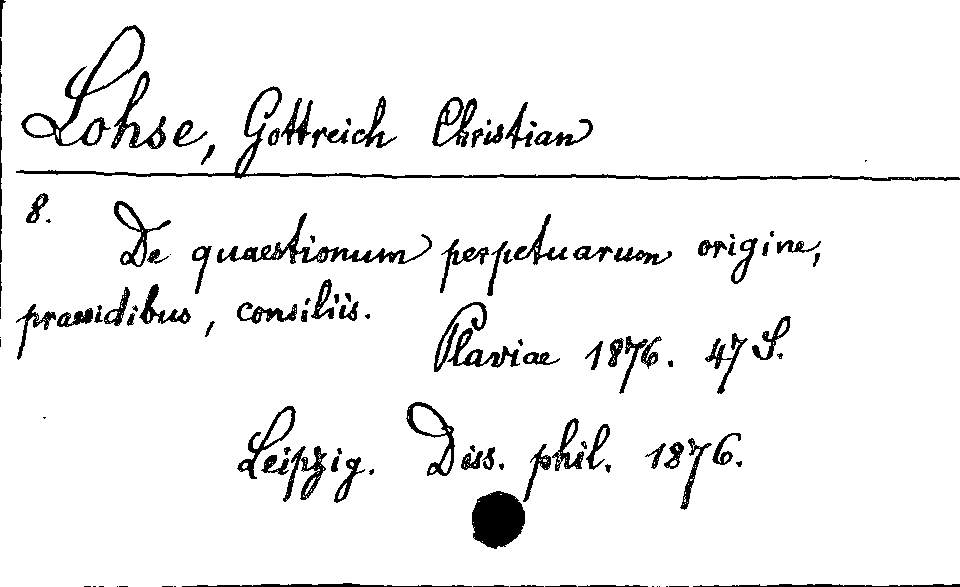 Lohse, Gottreich Christian
8.
De quaestionum perpetuarum origine,
praesidibus, consiliis.
Plaviae 1876. 47 S.
Leipzig. Diss. phil. 1876.